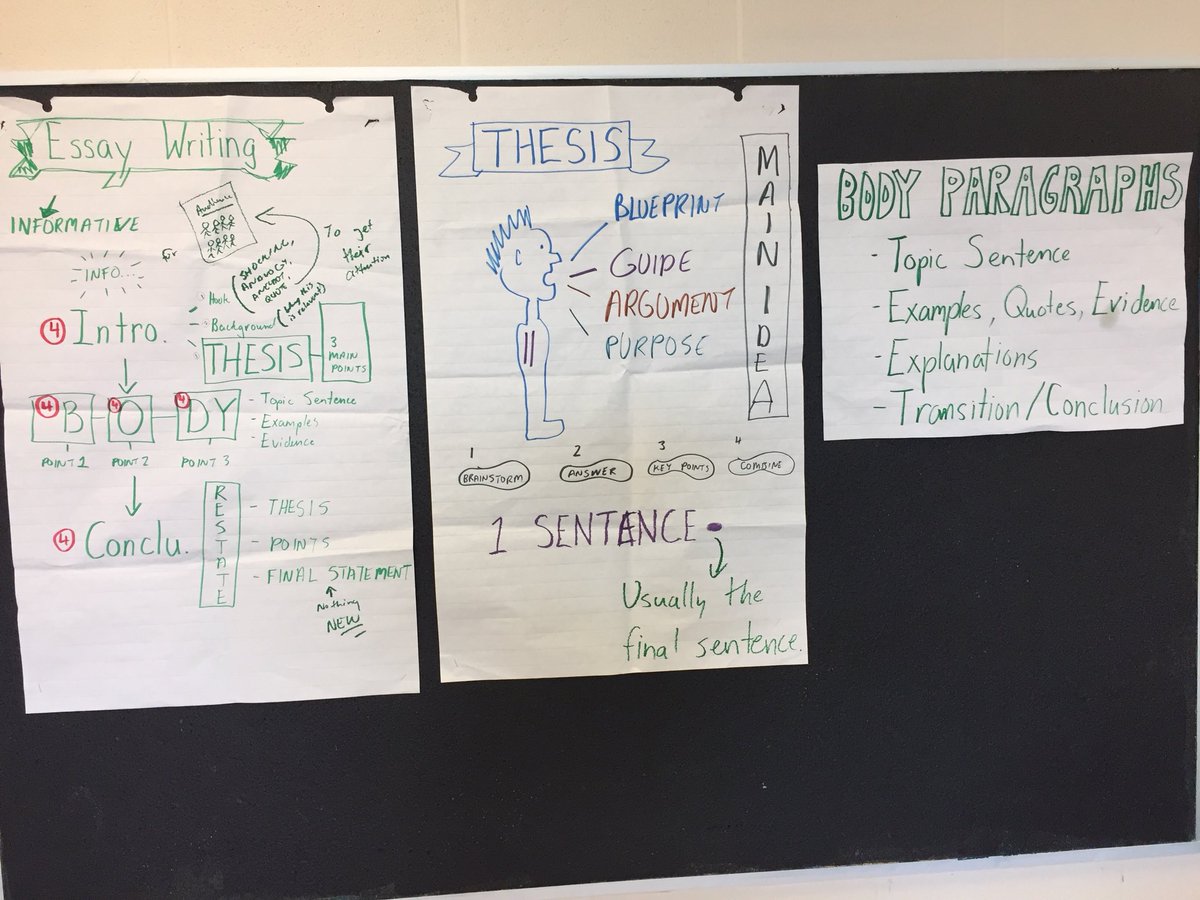 Essay Writing
INFORMATIVE
for
Audience
INFO...
To get
their
attention
Hook
(SHOCKING,
ANALOGY,
ANECDOT,
QUOTE,
Background
is relevant)
④ Intro.
THESIS
3
MAIN
POINTS
④ B - ④ O - ④ DY
POINT 1 POINT 2 POINT 3
- Topic Sentence
- Examples
- Evidence
④ Conclu.
RESTATE
- THESIS
- POINTS
- FINAL STATEMENT
Nothing
NEW
THESIS
MAIN IDEA
BLUEPRINT
GUIDE
ARGUMENT
PURPOSE
1 2 3 4
BRAINSTORM ANSWER KEY POINTS COMBINE
1 SENTENCE.
Usually the
final sentence.
BODY PARAGRAPHS
- Topic Sentence
- Examples, Quotes, Evidence
- Explanations
- Transition/Conclusion